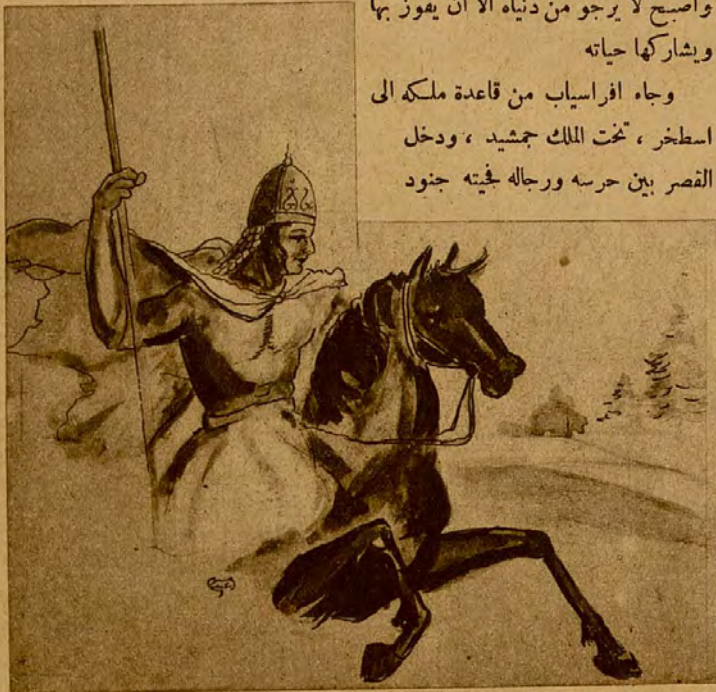 واصبح لا يرجو من دنياه الا ان يفوز بها
ويشاركها حياته
وجاء افراسياب من قاعدة ملكه الى
اسطخر ، تخت الملك جمشيد ، ودخل
القصر بين حرسه ورجاله فحيته جنود